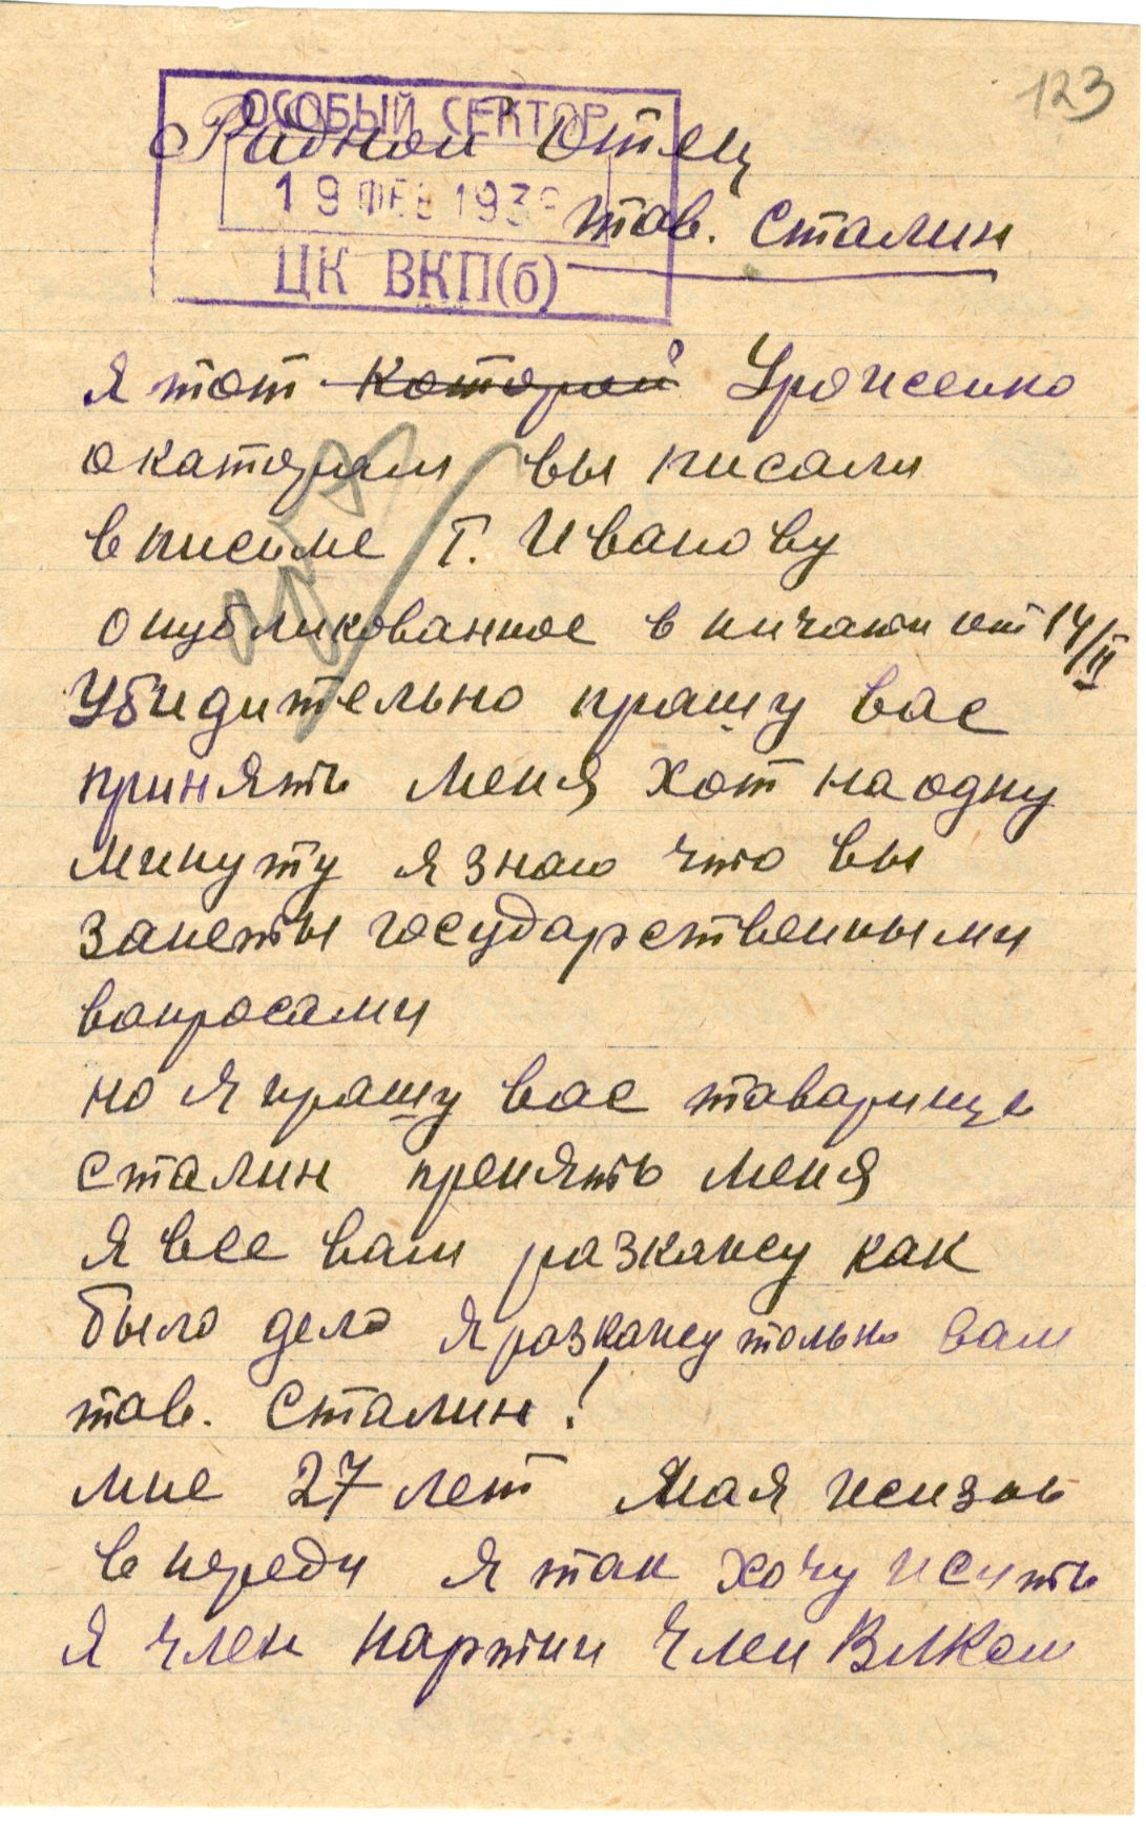 123
ОСОБЫЙ СЕКТОР
19 ФЕВ 193
ЦК ВКП(б)
Радной Отец
тов. Сталин
Я тот которой Уроженко
о каторам вы писали
в писиме Т. Иванову
опубликованное в пичати от 14/II
Убидительно прашу вас
принять меня хот на одну
минуту я знаю что вы
занеты государственными
вопросами
но я прашу вас таварищь
Сталин пренять меня
я все вам разкажу как
было дело я разкажу только вам
тов. Сталин!
мне 27 лет Мая жизнь
в переди я так хочу жить
я член партии член ВЛКСМ